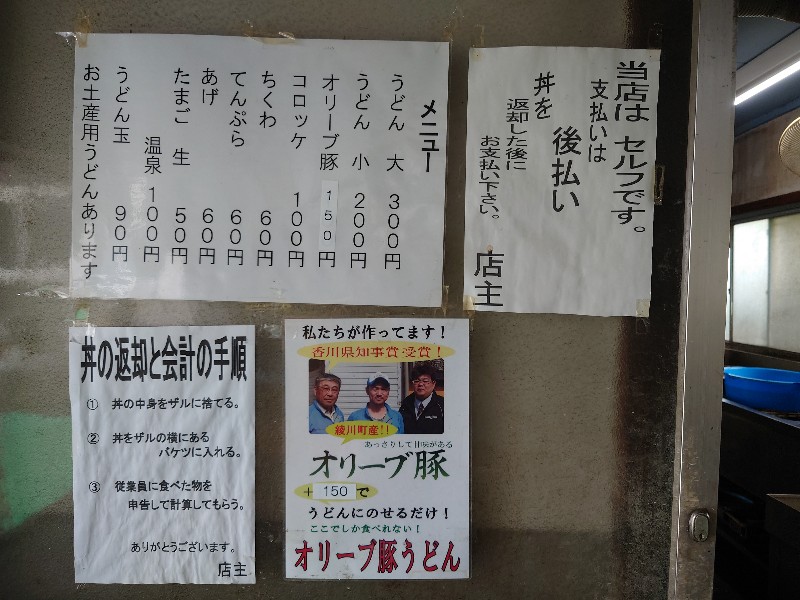 メニュー
うどん 大 300円
うどん 小 200円
オリーブ豚 150円
コロッケ 100円
ちくわ 60円
てんぷら 60円
あげ 60円
たまご 生 50円
温泉 100円
うどん玉 90円
お土産用うどんあります
当店は セルフです。
支払いは
後払い
丼を
返却した後に
お支払い下さい。
店主
丼の返却と会計の手順
① 丼の中身をザルに捨てる。
② 丼をザルの横にある
バケツに入れる。
③ 従業員に食べた物を
申告して計算してもらう。
ありがとうございます。
店主
私たちが作ってます!
香川県知事賞受賞!
綾川町産!!
あっさりして甘味がある
オリーブ豚
+150で
うどんにのせるだけ!
ここでしか食べれない!
オリーブ豚うどん